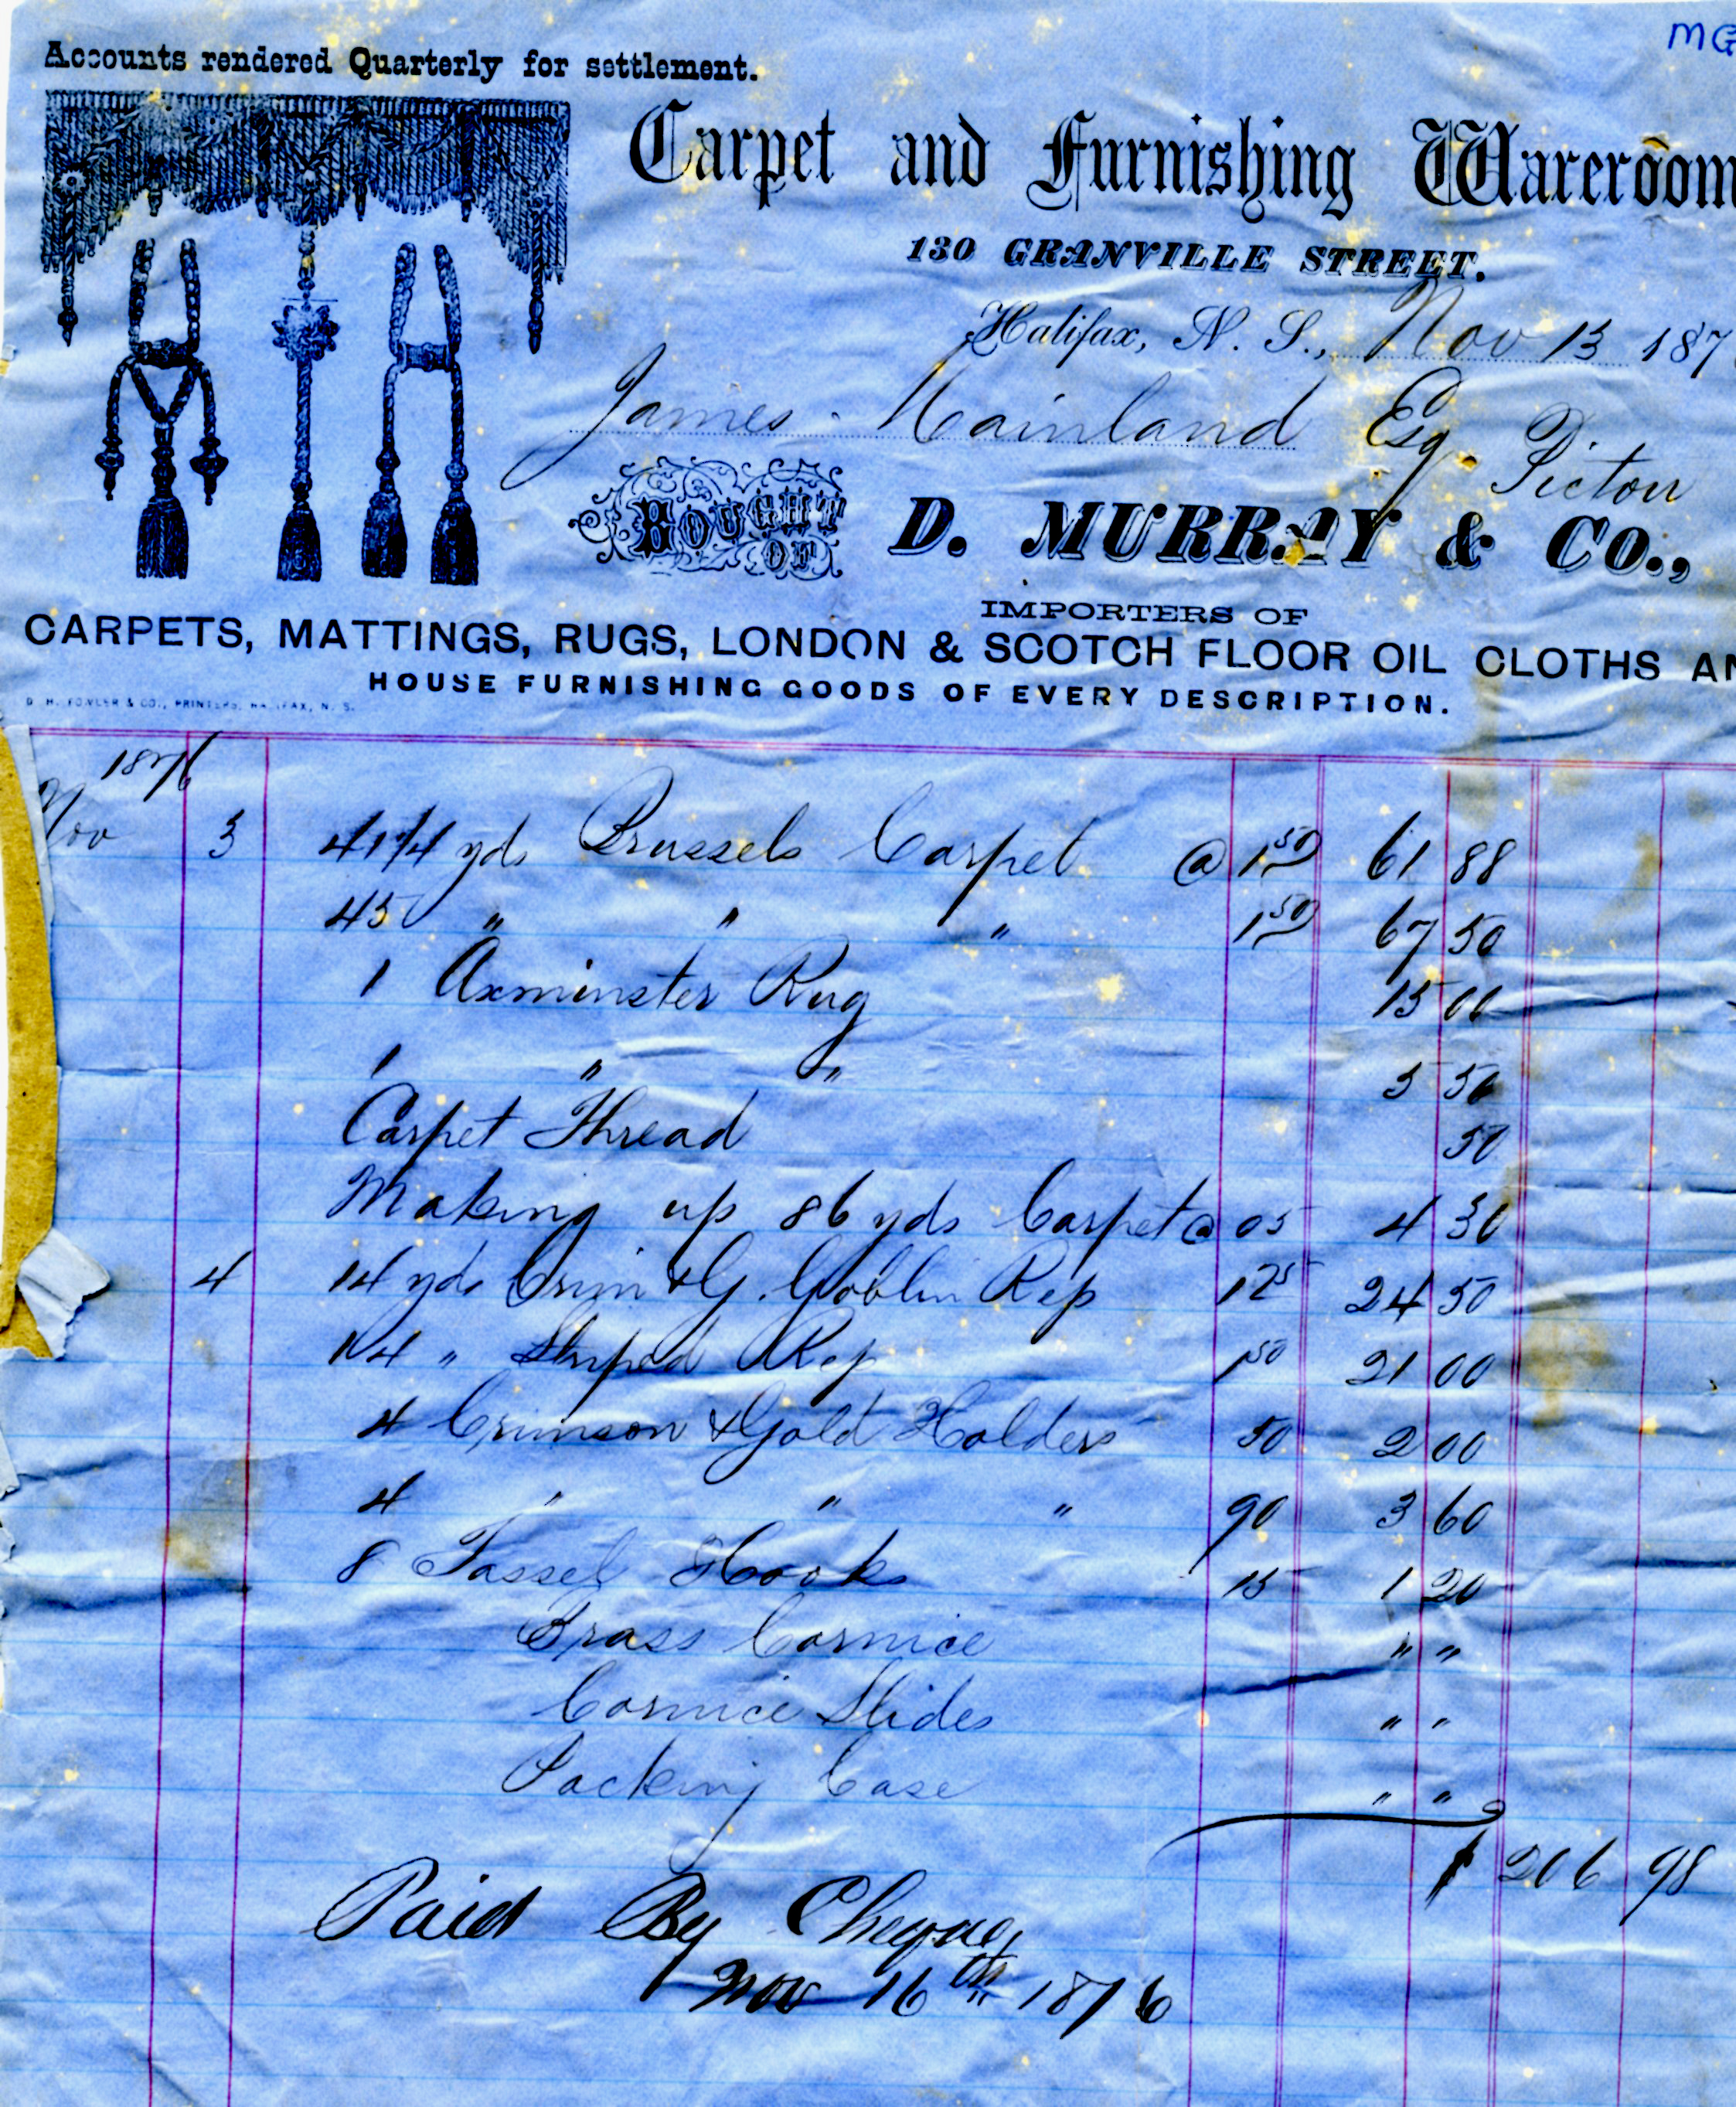 MG
Accounts rendered Quarterly for settlement.
Carpet and Furnishing Wareroom
130 GRANVILLE STREET.
Halifax, N. S., Nov 13 187
James Mainland Esq. Picton
BOUGHT OF D. MURRAY & CO.,
IMPORTERS OF
CARPETS, MATTINGS, RUGS, LONDON & SCOTCH FLOOR OIL CLOTHS AN
HOUSE FURNISHING GOODS OF EVERY DESCRIPTION.
D. H. FOWLER & CO., PRINTERS, HALIFAX, N. S.
1876
Nov 3 41 1/4 yds Brussels Carpet @ 1 50 61 88
45 " " " 1 50 67 50
1 Axminster Rug 15 00
1 " " 5 50
Carpet Thread 50
Making up 86 yds Carpet @ 05 4 30
4 14 yds Crim & G. Goblin Rep 1 75 24 50
14 " Striped Rep 1 50 21 00
4 Crimson & Gold Holders 50 2 00
4 " " " 90 3 60
8 Tassel Hooks 15 1 20
Brass Cornice " "
Cornice Slides " "
Packing Case " "
$ 206 98
Paid By Cheque
Nov 16th 1876